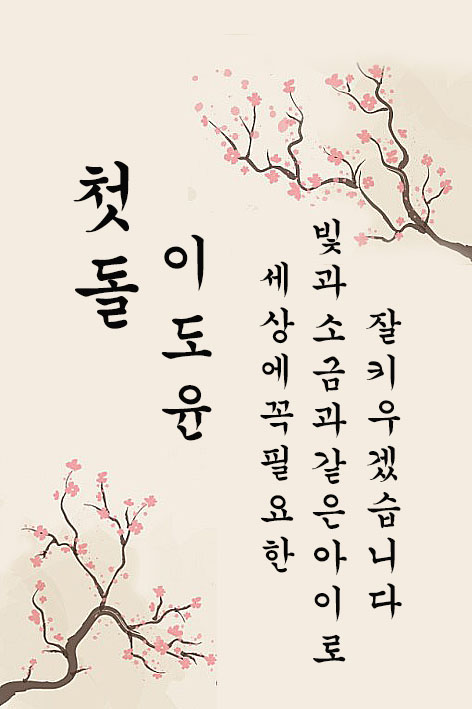 첫돌
이도윤
세상에꼭필요한
빛과소금과같은아이로
잘키우겠습니다